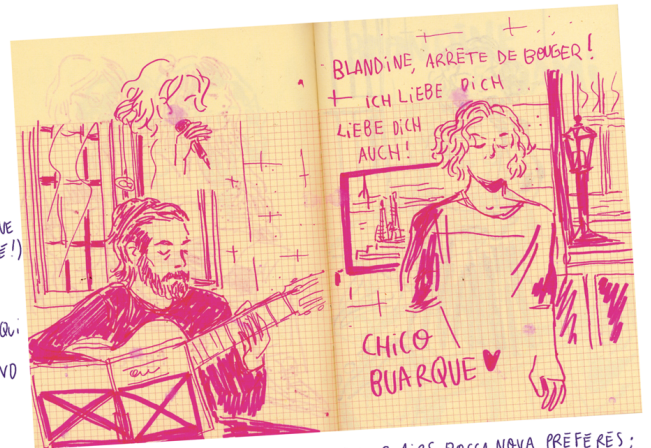 BLANDINE, ARRÊTE DE BOUGER!
ICH LIEBE DICH
LIEBE DICH
AUCH!
CHICO
BUARQUE ♥
E!)
QUI
BOSSA NOVA PRÉFÉRÉS: